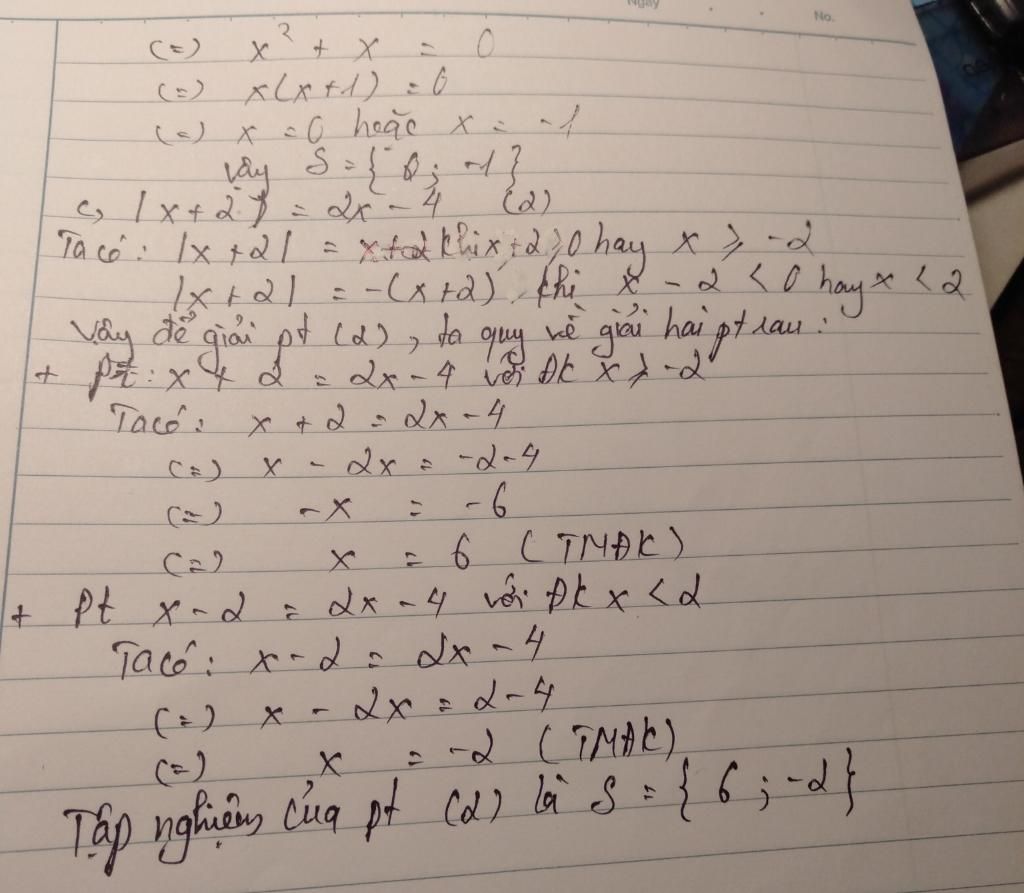 Ngày
No.
(=) x² + x = 0
(=) x(x+1) = 0
(=) x = 0 hoặc x = -1
Vậy S = { 0; -1}
c, |x+2| = 2x - 4 (2)
Ta có: |x+2| = x+2 khi x+2 ⩾ 0 hay x ⩾ -2
|x+2| = -(x+2), khi x - 2 < 0 hay x < 2
Vậy để giải pt (2), ta quy về giải hai pt sau:
+ Pt: x + 2 = 2x - 4 với ĐK x ⩾ -2
Ta có: x + 2 = 2x - 4
(=) x - 2x = -2-4
(=) -x = -6
(=) x = 6 (TMĐK)
+ Pt x - 2 = 2x - 4 với ĐK x < 2
Ta có: x - 2 = 2x - 4
(=) x - 2x = 2 - 4
(=) x = -2 (TMĐK)
Tập nghiệm của pt (2) là S = { 6 ; -2}